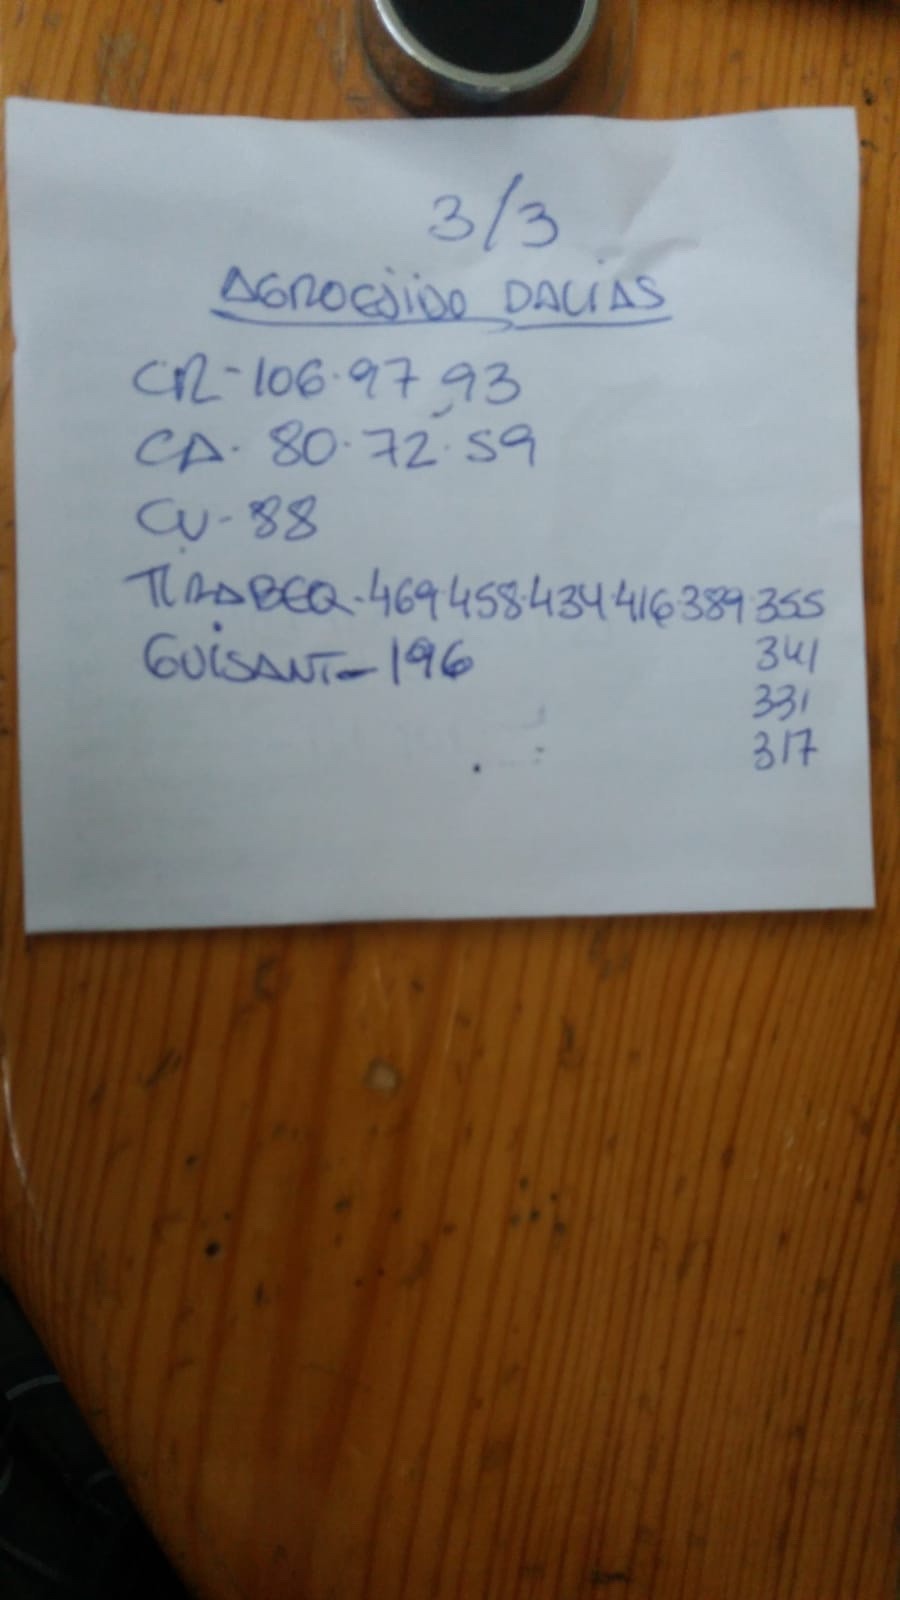 3/3
AGROEJIDO DALÍAS
CR-106.97,93
CA. 80.72.59
CU-88
TIRABEQ-469.458.434.416.389.355
341
GUISANT-196
331
317